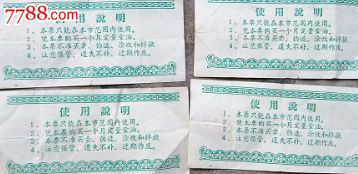 7788.com
使用說明
1、本票只能在本市范围内使用。
2、凭本票购买一个月定量食油。
3、本票不准买卖、伪造、涂改和拼接
4、注意保管、遗失不补、过期作废。
使用說明
1、本票只能在本市范围内使用。
2、凭本票购买一个月定量食油。
3、本票不准买卖、伪造、涂改和拼接
4、注意保管、遗失不补、过期作废。
使用說明
1、本票只能在本市范围内使用。
2、凭本票购买一个月定量食油。
3、本票不准买卖、伪造、涂改和拼接
4、注意保管、遗失不补、过期作废。
使用說明
1、本票只能在本市范围内使用。
2、凭本票购买一个月定量食油。
3、本票不准买卖、伪造、涂改和拼接
4、注意保管、遗失不补、过期作废。